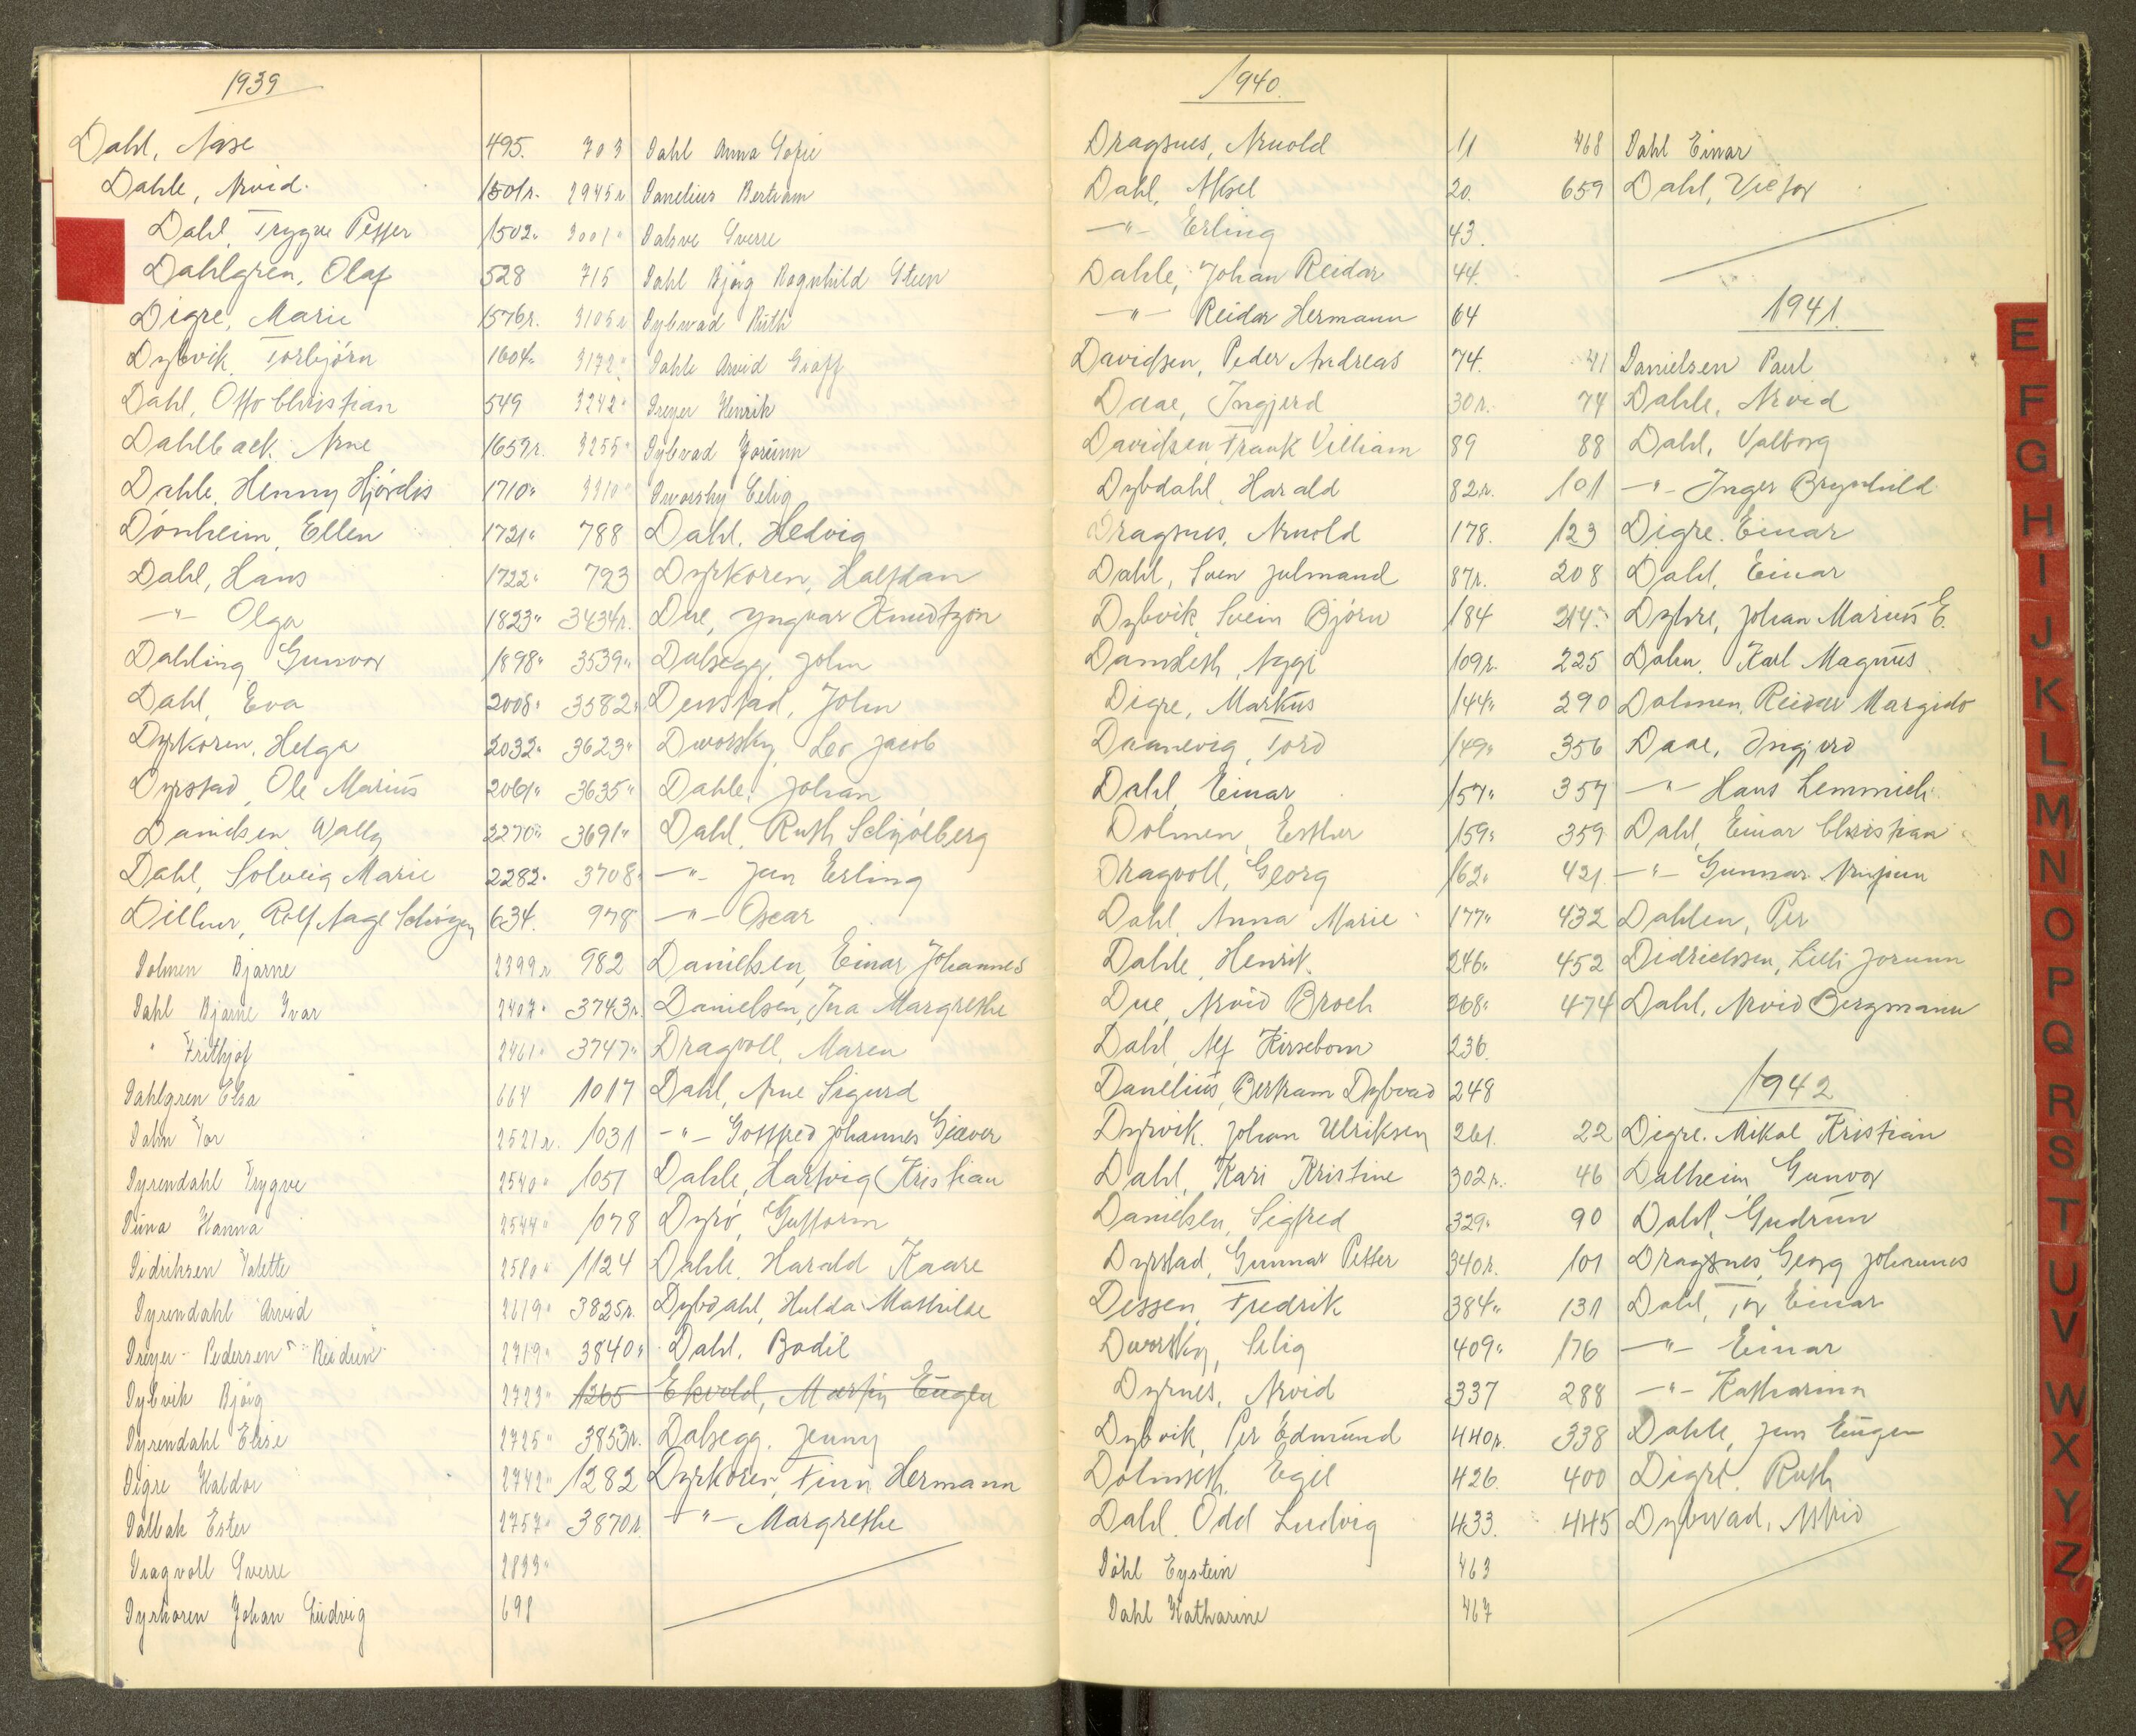 1939
Dahl, Aase 495.
Dahle, Arvid. 1501r.
Dahl, Trygve Petter 1502"
Dahlgren, Olaf 528
Digre, Marie 1576r.
Dybvik, Torbjörn 1604"
Dahl, Otto Christian 549
Dahlback, Arne 1657r.
Dahle, Henny Hjørdis 1710"
Dönheim, Ellen 1721"
Dahl, Hans 1722"
-"- Olga 1823"
Dahling, Gunvor 1898"
Dahl, Eva 2008"
Dyrkoren, Helga 2032"
Dyrstad, Ole Marius 2061"
Danielsen, Wally 2270"
Dahl, Solveig Marie 2282"
Dillner, Rolf Aage 634.
Dolmen Bjarne 2399r
Dahl Bjarne Ivar 2407"
" Frithjof 2461"
Dahlgren Elsa 664
Dahn Tor 2521r.
Dyrendahl Trygve 2540"
Duna Hanna 2544"
Didriksen Valette 2580"
Dyrendahl Arvid 2619"
Dreyer-Pedersen Reidun 2719"
Dybvik Bjørg 2723"
Dyrendahl Elise 2725"
Digre Haldor 2742"
Dalbak Ester 2757"
Dragvoll Sverre 2833"
Dyrkoren Johan Ludvig 691
703 Dahl Anna Sofie
2945r Danelius Bertram
3001" Dalsve Sverre
715 Dahl Bjørg Ragnhild Steen
3105r Dybwad Ruth
3172" Dahle Arvid Graff
3242" Dreyer Henrik
3255" Dybwad Jorunn
3310" Dworsky Selig
788 Dahl, Hedvig
793 Dyrkoren, Halfdan
3434r. Due, Yngvar Knudtzon
3539" Dalsegg, John
3582" Denstad, John
3623" Dworsky, Leo Jacob
3635" Dahle, Johan
3691" Dahl, Ruth Schjölberg
3708" -"- Jan Erling
978 -"- Oscar
982 Danielsen, Einar Johannes
3743r. Danielsen, Ina Margrethe
3747" Dragvoll, Maren
1017 Dahl, Arne Sigurd
1031 -"- Gottfred Johannes Giæver
1051 Dahle, Hartvig Kristian
1078 Dyrö, Guttorm
1124 Dahle, Harald Kaare
3825r. Dybdahl, Hulda Mathilde
3840" Dahl, Bodil
1265 Ekvold, Martin Eugen
3853r. Dalsegg, Jenny
1282 Dyrkoren, Finn Hermann
3870r. -"- Margrethe
1940.
Dragsnes, Arnold 11
Dahl, Aksel 20.
-"- Erling 43.
Dahle, Johan Reidar 44.
-"- Reidar Hermann 64
Davidsen, Peder Andreas 74.
Daae, Ingjerd 30r.
Davidsen, Frank Villiam 89
Dybdahl, Harald 82r.
Dragsnes, Arnold 178.
Dahl, Sven Julmand 87r.
Dybvik, Svein Björn 184
Damsleth, Aggi 109r.
Digre, Markus 144"
Danevig, Tord 149"
Dahl, Einar 157"
Dolmen, Esther 159"
Dragvoll, Georg 162"
Dahl, Anna Marie 177"
Dahle, Henrik. 246"
Due, Arvid Broch 268"
Dahl, Alf Kirsebom 236.
Danelius, Bertram Dybvad 248
Dyrvik, Johan Ulriksen 261.
Dahl, Kari Kristine 302r.
Danielsen, Sigfred 329"
Dyrstad, Gunnar Petter 340r.
Dessen, Fredrik 384"
Dworsky, Selig 409"
Dyrnes, Arvid 337
Dybvik, Per Edmund 440r.
Dolmseth, Egil 426.
Dahl, Odd Ludvig 433.
Döhl Eystein 463
Dahl Katharine 467
468 Dahl Einar
659 Dahl, Victor
1941.
41 Danielsen Paul
74 Dahle, Arvid
88 Dahl, Valborg
101 -"- Inger Brynhild
123 Digre. Einar
208 Dahl, Einar
214" Dyhre, Johan Marius E.
225 Dahn, Karl Magnus
290 Dolmen, Reidar Margido
356 Daae, Ingjerd
357 -"- Hans Lemmich
359 Dahl, Einar Christian
421 -"- Gunnar
432 Dahlen, Per
452 Didrichsen, Lilli Jorunn
474 Dahl, Arvid Bergmann
1942
22 Digre. Mikal Kristian
46 Dalheim Gunvor
90 Dahl, Gudrun
101 Dragsnes, Georg Johannes
131 Dahl, Tor Einar
176 -"- Einar
288 -"- Katharina
338 Dahle, Jan Eugen
400 Digre. Ruth
445 Dybwad, Astrid
E
F
G
H
I
J
K
L
M
N
O
P
Q
R
S
T
U
V
W
X
Y
Z
Ø